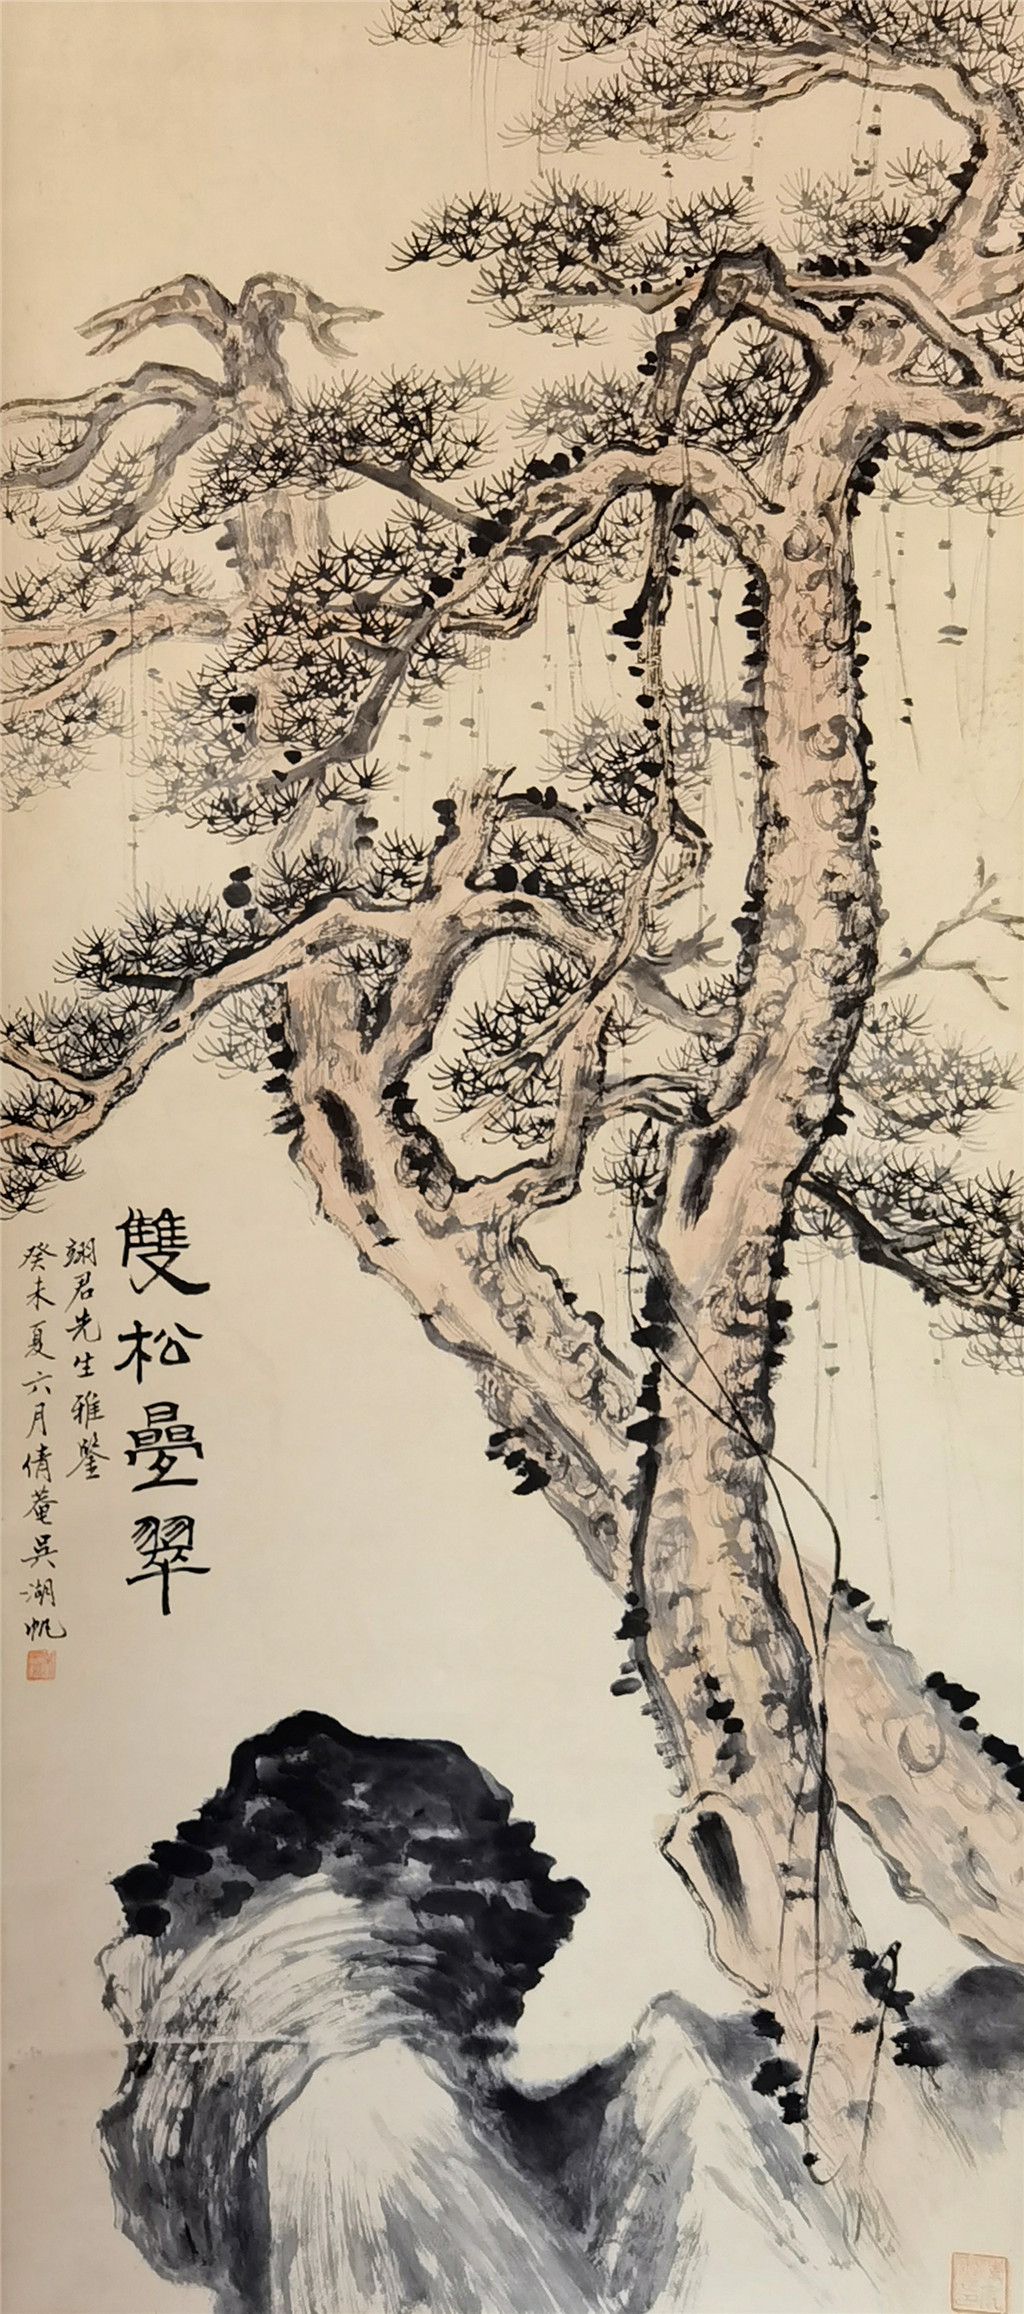 雙松疊翠
翊君先生雅鑒
癸未夏六月倩菴吳湖帆